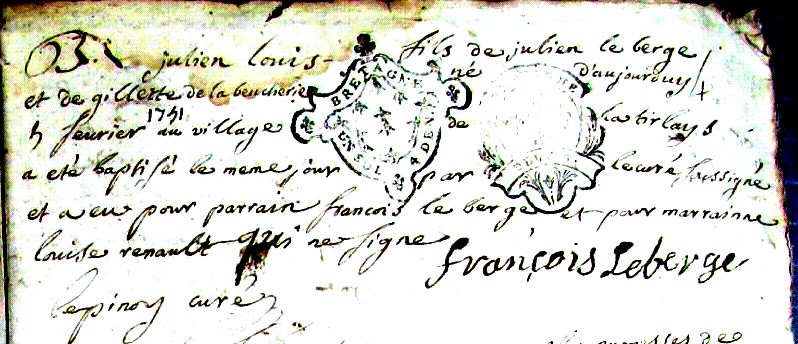 B. julien louis fils de julien le berge
et de gillette de la beucherie né d'aujourduy
5 feurier 1741 au village de la tirlays
a eté baptisé le meme jour par le curé soussigné
et a eu pour parrain françois le berge et pour marrainne
louise renault qui ne signe
françois Leberge
Lepinoy curé
BRETAGNE
UN SOL 4 DEN